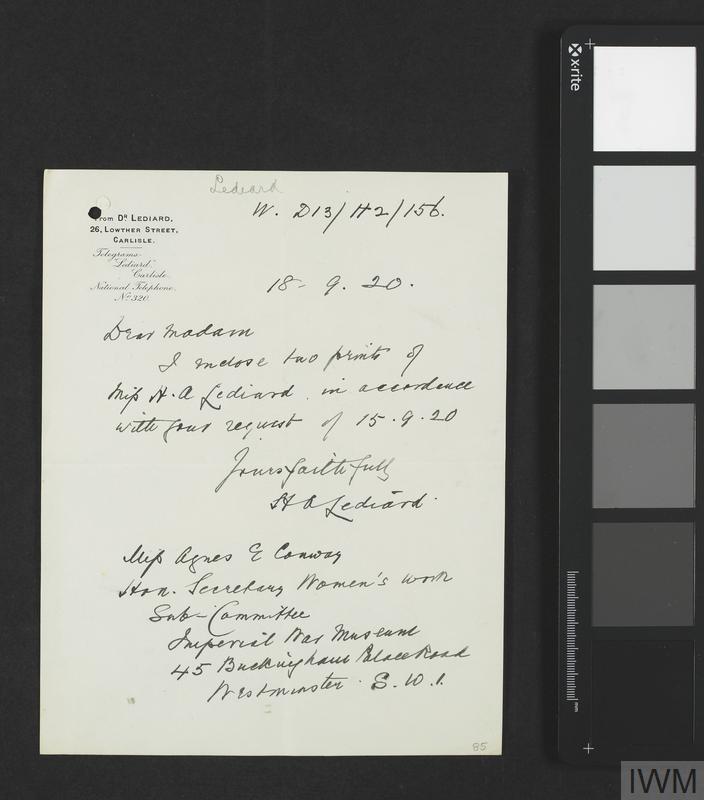 Lediard
W. D13/H2/156.
From DR LEDIARD,
26, LOWTHER STREET,
CARLISLE.
Telegrams-
"Lediard,"
Carlisle.
National Telephone.
No 320.
18 - 9. 20.
Dear Madam
I inclose two prints of
Miss H. A Lediard in accordance
with your request of 15.9.20
Yours faithfully
H A Lediard.
Miss Agnes E Conway
Hon. Secretary Women's work
Sub-Committee
Imperial War Museum
45 Buckingham Palace Road
Westminster S.W.1.
85
x-rite
mm
IWM